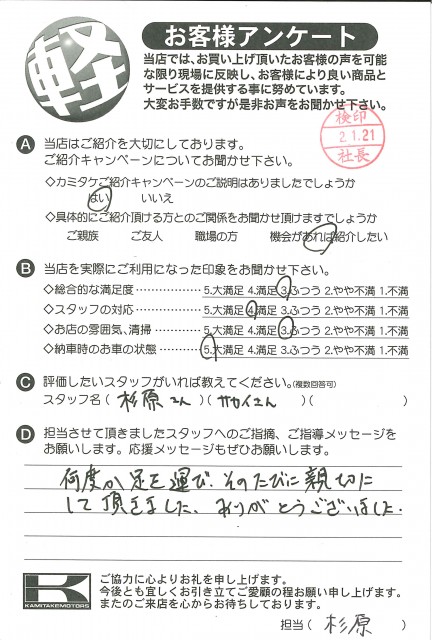 軽
お客様アンケート
当店では、お買い上げ頂いたお客様の声を可能
な限り現場に反映し、お客様により良い商品と
サービスを提供する事に努めています。
大変お手数ですが是非お声をお聞かせ下さい。
検印
2.1.21
社長
A 当店はご紹介を大切にしております。
ご紹介キャンペーンについてお聞かせ下さい。
◇カミタケご紹介キャンペーンのご説明はありましたでしょうか
はい いいえ
◇具体的にご紹介頂ける方とのご関係をお聞かせ頂けますでしょうか
ご親族 ご友人 職場の方 機会があれば紹介したい
B 当店を実際にご利用になった印象をお聞かせ下さい。
◇総合的な満足度 5.大満足 4.満足 3.ふつう 2.やや不満 1.不満
◇スタッフの対応 5.大満足 4.満足 3.ふつう 2.やや不満 1.不満
◇お店の雰囲気、清掃 5.大満足 4.満足 3.ふつう 2.やや不満 1.不満
◇納車時のお車の状態 5.大満足 4.満足 3.ふつう 2.やや不満 1.不満
C 評価したいスタッフがいれば教えてください。(複数回答可)
スタッフ名 ( 杉原さん )( サカイさん )( )
D 担当させて頂きましたスタッフへのご指摘、ご指導メッセージを
お願いします。応援メッセージもぜひお願いします。
何度か足を運び、そのたびに親切に
して頂きました、ありがとうございました。
K
KAMITAKEMOTORS
ご協力に心よりお礼を申し上げます。
今後とも宜しくお引き立てご愛顧の程お願い申し上げます。
またのご来店を心からお待ちしております。
担当 ( 杉原 )